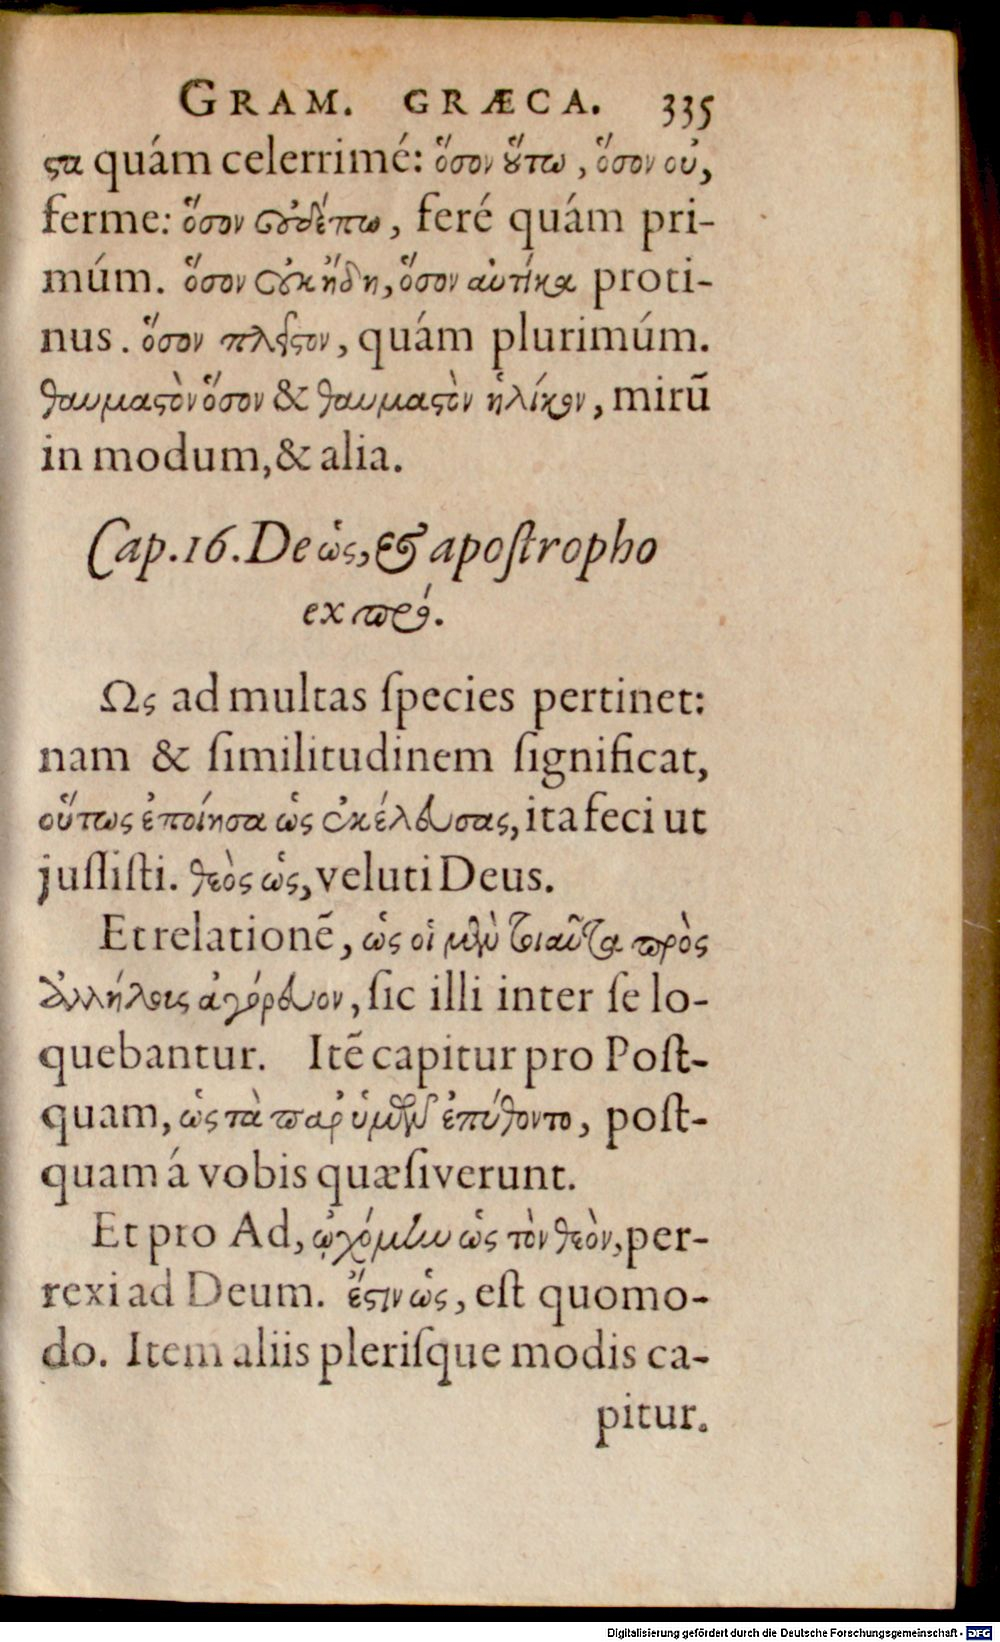 GRAM. GRÆCA. 335
ϛα quám celerrimé: ὅσον ȣ̔́πω, ὅσον οὐ,
ferme: ὅσον οὐδέπω, feré quám pri-
múm. ὅσον οὐκ ἤδη, ὅσον αὐτίκα proti-
nus. ὅσον πλεῖϛον, quám plurimúm.
θαυμαϛὸν ὅσον & θαυμαϛὸν ἡλίκον, mirū
in modum, & alia.
Cap. 16. De ὡς, & apoſtropho
ex πρό.
Ως ad multas ſpecies pertinet:
nam & ſimilitudinem ſignificat,
οὕτως ἐποίησα ὡς ἐκέλευσας, ita feci ut
juſſiſti. θεὸς ὡς, veluti Deus.
Et relationē, ὡς οἱ μὲν τοιαῦτα πρὸς
ἀλλήλοις ἀγόρευον, ſic illi inter ſe lo-
quebantur. Itē capitur pro Poſt-
quam, ὡς τὰ παρ ὑμῶν ἐπύθοντο, poſt-
quam á vobis quæſiverunt.
Et pro Ad, ᾠχόμην ὡς τὸν θεὸν, per-
rexi ad Deum. ἔϛιν ὡς, eſt quomo-
do. Item aliis pleriſque modis ca-
pitur.
Digitalisierung gefördert durch die Deutsche Forschungsgemeinschaft - DFG